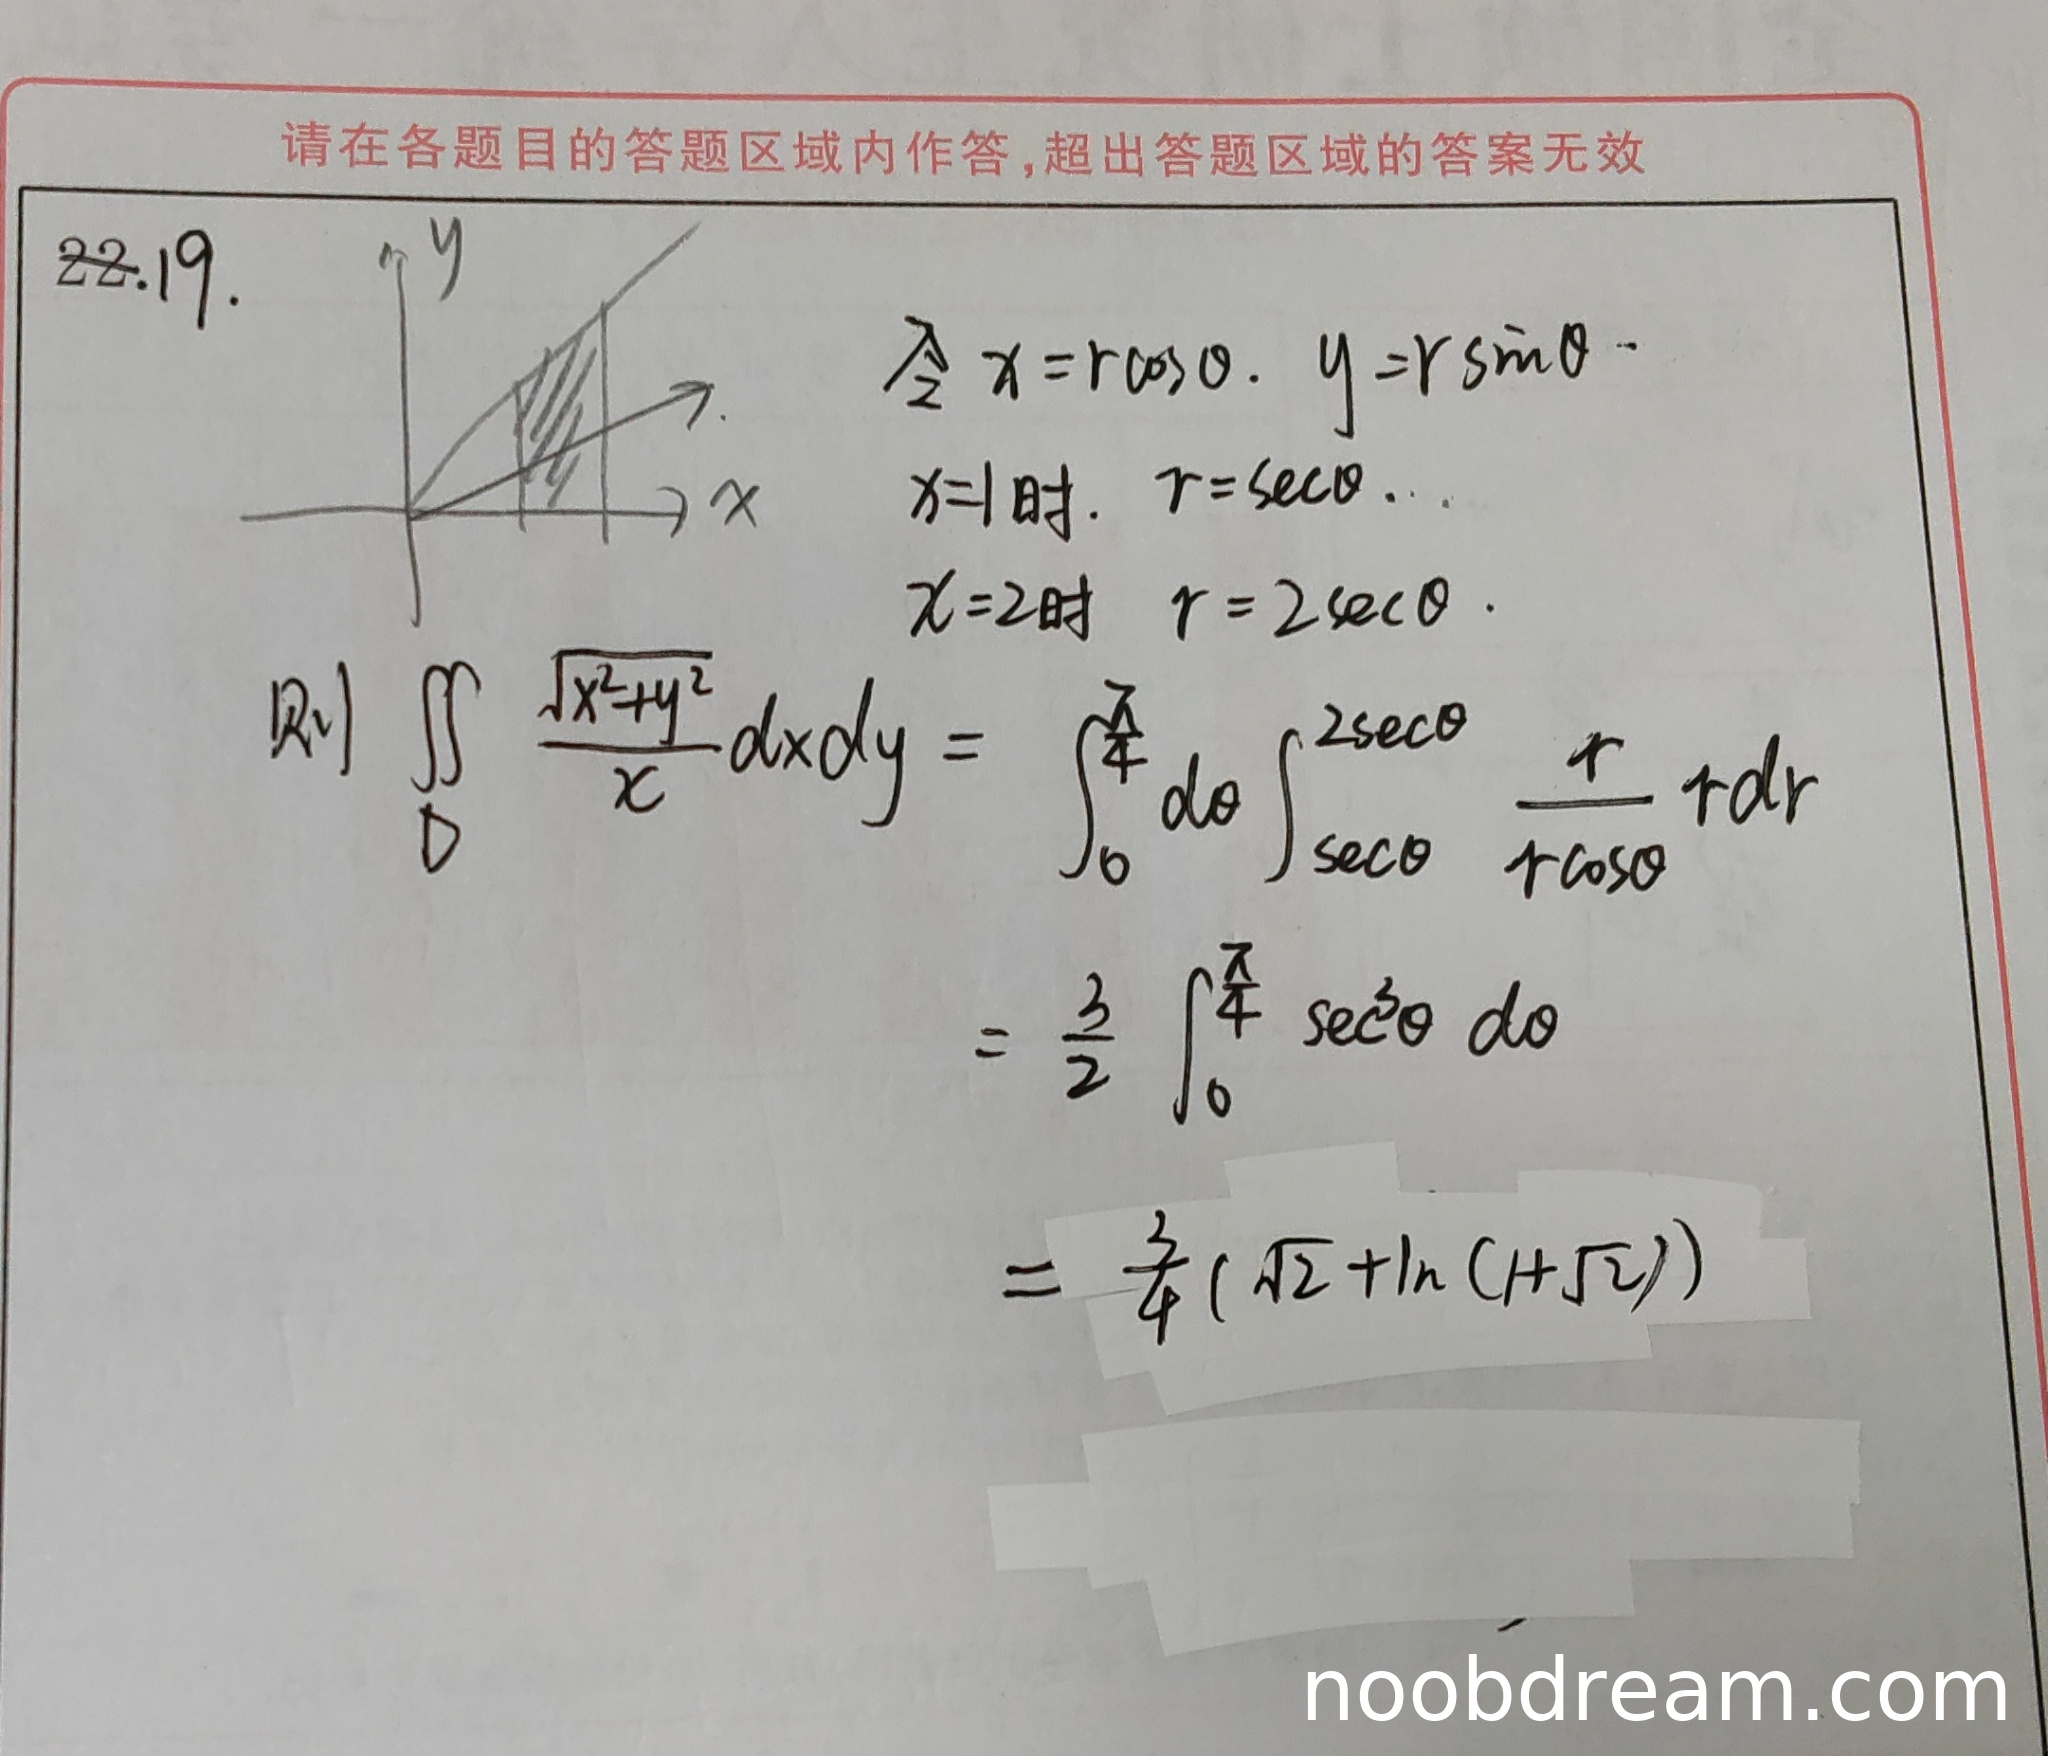 请在各题目的答题区域内作答,超出答题区域的答案无效
22.19.
y
x
令 x=rcosθ. y=rsinθ
x=1时. r=secθ...
x=2时 r=2secθ.
则 ∬_D √(x²+y²)/x dxdy = ∫_0^{π/4} dθ ∫_{secθ}^{2secθ} r/(rcosθ) rdr
= 3/2 ∫_0^{π/4} sec³θ dθ
= 3/4 (√2+ln(1+√2))
noobdream.com